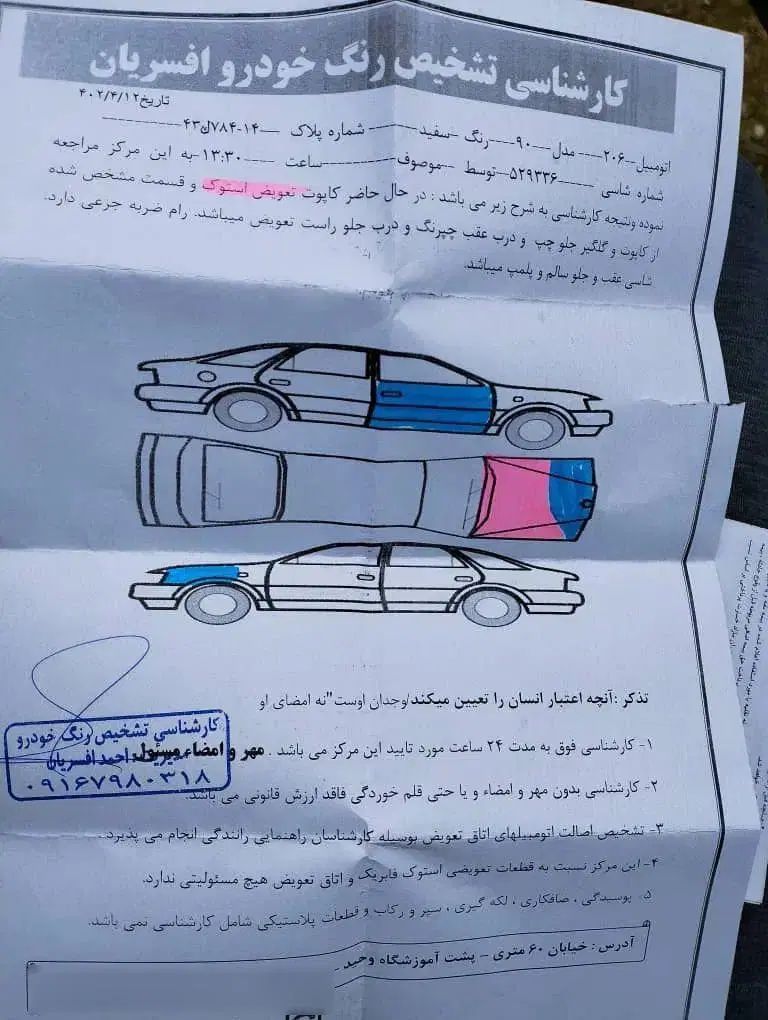 کارشناسی تشخیص رنگ خودرو افسریان
تاریخ ۴۰۲/۴/۱۲
اتومبیل --۲۰۶-- مدل --۹۰-- رنگ --سفید-- شماره پلاک --۱۴-۷۸۴ل۴۳--
شماره شاسی --۵۲۹۳۳۶-- توسط --موصوف-- ساعت --۱۳:۳۰-- به این مرکز مراجعه
نموده ونتیجه کارشناسی به شرح زیر می باشد : در حال حاضر کاپوت تعویض استوک و قسمت مشخص شده
از کاپوت و گلگیر جلو چپ و درب عقب چپرنگ و درب جلو راست تعویض میباشد. رام ضربه جرعی دارد.
شاسی عقب و جلو سالم و پلمپ میباشد.
تذکر :آنچه اعتبار انسان را تعیین میکند/وجدان اوست"نه امضای او
۱- کارشناسی فوق به مدت ۲۴ ساعت مورد تایید این مرکز می باشد . مهر و امضاء مسئول:
کارشناسی تشخیص رنگ خودرو
احمد افسریان
۰۹۱۶۷۹۸۰۳۱۸
۲- کارشناسی بدون مهر و امضاء و یا حتی قلم خوردگی فاقد ارزش قانونی می باشد.
۳- تشخیص اصالت اتومبیلهای اتاق تعویض بوسیله کارشناسان راهنمایی رانندگی انجام می پذیرد.
۴- این مرکز نسبت به قطعات تعویضی استوک فابریک و اتاق تعویض هیچ مسئولیتی ندارد.
۵- پوسیدگی ، صافکاری ، لکه گیری ، سپر و رکاب و قطعات پلاستیکی شامل کارشناسی نمی باشد.
آدرس : خیابان ۶۰ متری - پشت آموزشگاه وحید